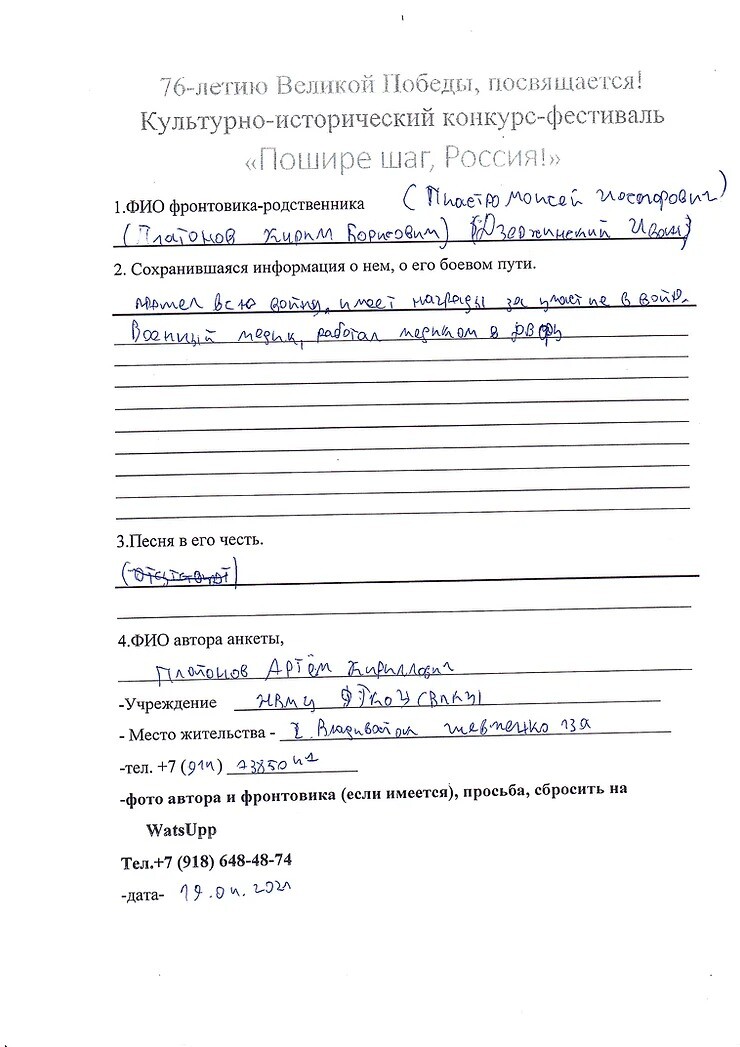 76-летию Великой Победы, посвящается!
Культурно-исторический конкурс-фестиваль
«Пошире шаг, Россия!»
1.ФИО фронтовика-родственника (Пиастро Моисей
(Платонов Борисович) (Дзержинский Иван)
2. Сохранившаяся информация о нем, о его боевом пути.
всю войну, имеет награды за участие в
Военный медик, работал медиком в
3.Песня в его честь.
4.ФИО автора анкеты,
Платонов Артём Кириллович
-Учреждение
- Место жительства -
-тел. +7 (
-фото автора и фронтовика (если имеется), просьба, сбросить на
WatsUpp
Тел.+7 (918) 648-48-74
-дата- 19.04.2021